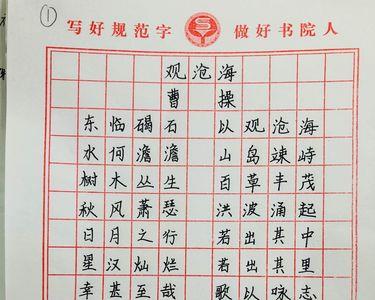 ①
写好规范字 做好书院人
观沧海
曹 操
东临碣石 以观沧海
水何澹澹 山岛竦峙
树木丛生 百草丰茂
秋风萧瑟 洪波涌起
日月之行 若出其中
星汉灿烂 若出其里
幸甚至哉 歌以咏志